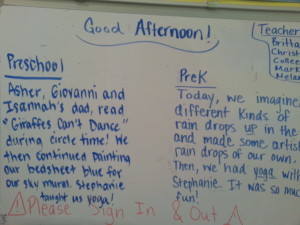 Good Afternoon!
Teacher
Britta
Christ
Collee
Mark
Melan
Preschool
Asher, Giovanni and
Isannah's dad, read
"Giraffes Can't Dance"
during circle time! We
then continued painting
our bedsheet blue for
our sky mural. Stephanie
taught us yoga!
PreK
Today, we imagine
different kinds of
rain drops up in the
and made some artis
rain drops of our own.
Then, we had yoga with
Stephanie. It was so muc
fun!
Please Sign In & Out